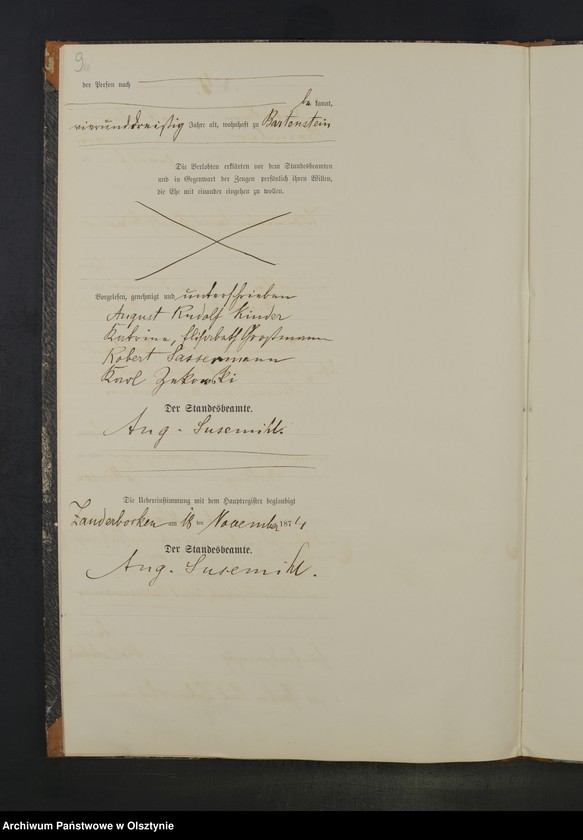 9
der Person nach
be kannt,
vierunddreißig Jahre alt, wohnhaft zu Bartenstein
Die Verlobten erklärten vor dem Standesbeamten
und in Gegenwart der Zeugen persönlich ihren Willen,
die Ehe mit einander eingehen zu wollen.
Vorgelesen, genehmigt und unterschrieben
August Rudolf Kinder
Katrine, Elisabeth Großmann
Robert Sassermann
Karl Zakowski
Der Standesbeamte.
Aug. Susemihl.
Die Uebereinstimmung mit dem Hauptregister beglaubigt
Zanderborken am 18 ten November 187
Der Standesbeamte.
Aug. Susemihl.
Archiwum Państwowe w Olsztynie